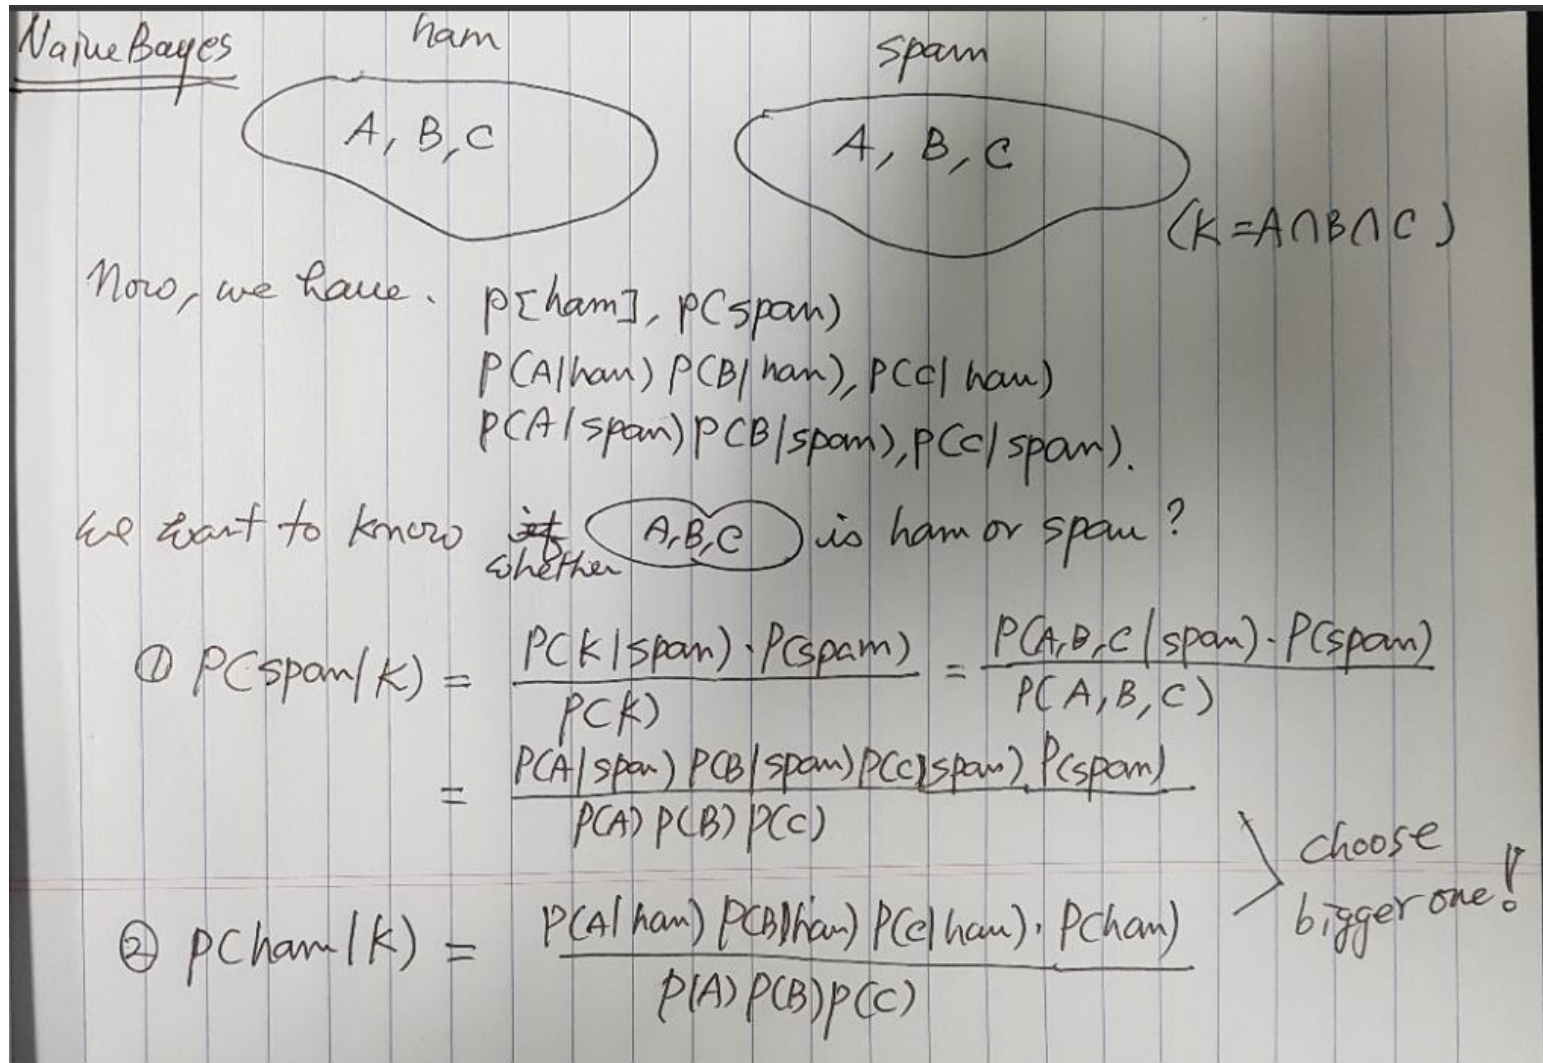 Naive Bayes
ham
spam
A, B, C
A, B, C
(K = A∩B∩C)
Now, we have.
P[ham], P(spam)
P(A|ham) P(B|ham), P(C|ham)
P(A|spam) P(B|spam), P(C|spam).
we want to know if whether A,B,C is ham or spam?
① P(spam|K) = P(K|spam)·P(spam) / P(K) = P(A,B,C|spam)·P(spam) / P(A,B,C)
= P(A|spam) P(B|spam) P(C|spam) P(spam) / P(A) P(B) P(C)
② P(ham|K) = P(A|ham) P(B|ham) P(C|ham)·P(ham) / P(A) P(B) P(C)
choose
bigger one!